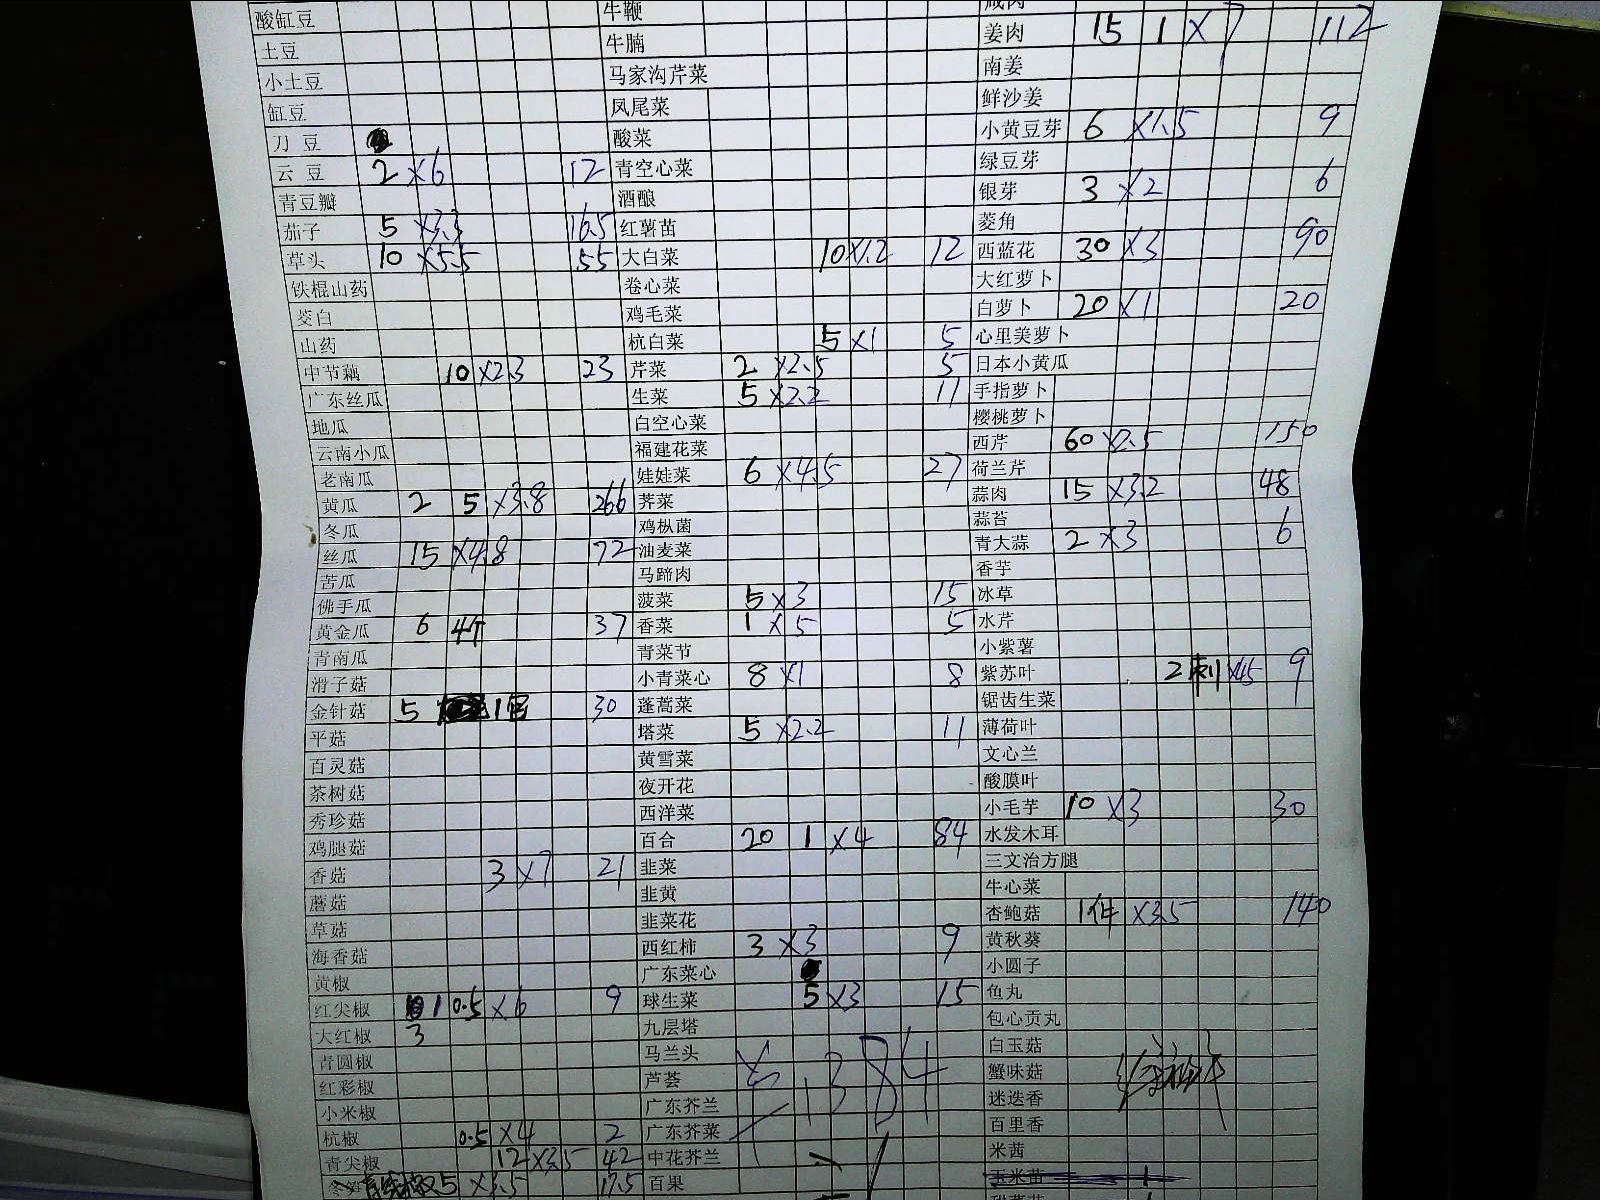 酸缸豆
土豆
小土豆
缸豆
刀豆
云豆 2 ×6 12
青豆瓣
茄子 5 ×3.3 16.5
草头 10 ×5.5 55
铁棍山药
茭白
山药
中节藕 10 ×2.3 23
广东丝瓜
地瓜
云南小瓜
老南瓜
黄瓜 2 5 ×3.8 266
冬瓜
丝瓜 15 ×4.8 72
苦瓜
佛手瓜
黄金瓜 6 4个 37
青南瓜
滑子菇
金针菇 5 30
平菇
百灵菇
茶树菇
秀珍菇
鸡腿菇
香菇 3 ×7 21
蘑菇
草菇
海香菇
黄椒
红尖椒 1 0.5 ×6 9
大红椒 3
青圆椒
红彩椒
小米椒
杭椒 0.5 ×4 2
青尖椒 12 ×3.5 42
5 ×3.5 17.5
牛鞭
牛腩
马家沟芹菜
凤尾菜
酸菜
青空心菜
酒酿
红薯苗
大白菜 10 ×1.2 12
卷心菜
鸡毛菜
杭白菜 5 ×1 5
芹菜 2 ×2.5 5
生菜 5 ×2.2 11
白空心菜
福建花菜
娃娃菜 6 ×4.5 27
荠菜
鸡枞菌
油麦菜
马蹄肉
菠菜 5 ×3 15
香菜 1 ×5 5
青菜节
小青菜心 8 ×1 8
蓬蒿菜
塔菜 5 ×2.2 11
黄雪菜
夜开花
西洋菜
百合 20 1 ×4 84
韭菜
韭黄
韭菜花
西红柿 3 ×3 9
广东菜心
球生菜 5 ×3 15
九层塔
马兰头
芦荟
广东芥兰
广东芥菜
中花芥兰
百果
咸肉
姜肉 15 1 ×7 112
南姜
鲜沙姜
小黄豆芽 6 ×1.5 9
绿豆芽
银芽 3 ×2 6
菱角
西蓝花 30 ×3 90
大红萝卜
白萝卜 20 ×1 20
心里美萝卜
日本小黄瓜
手指萝卜
樱桃萝卜
西芹 60 ×2.5 150
荷兰芹
蒜肉 15 ×3.2 48
蒜苔
青大蒜 2 ×3 6
香芋
冰草
水芹
小紫薯
紫苏叶 2 ×4.5 9
锯齿生菜
薄荷叶
文心兰
酸膜叶
小毛芋 10 ×3 30
水发木耳
三文治方腿
牛心菜
杏鲍菇 1件 ×3.5 140
黄秋葵
小圆子
鱼丸
包心贡丸
白玉菇
蟹味菇
迷迭香
百里香
米茜
玉米苗 1